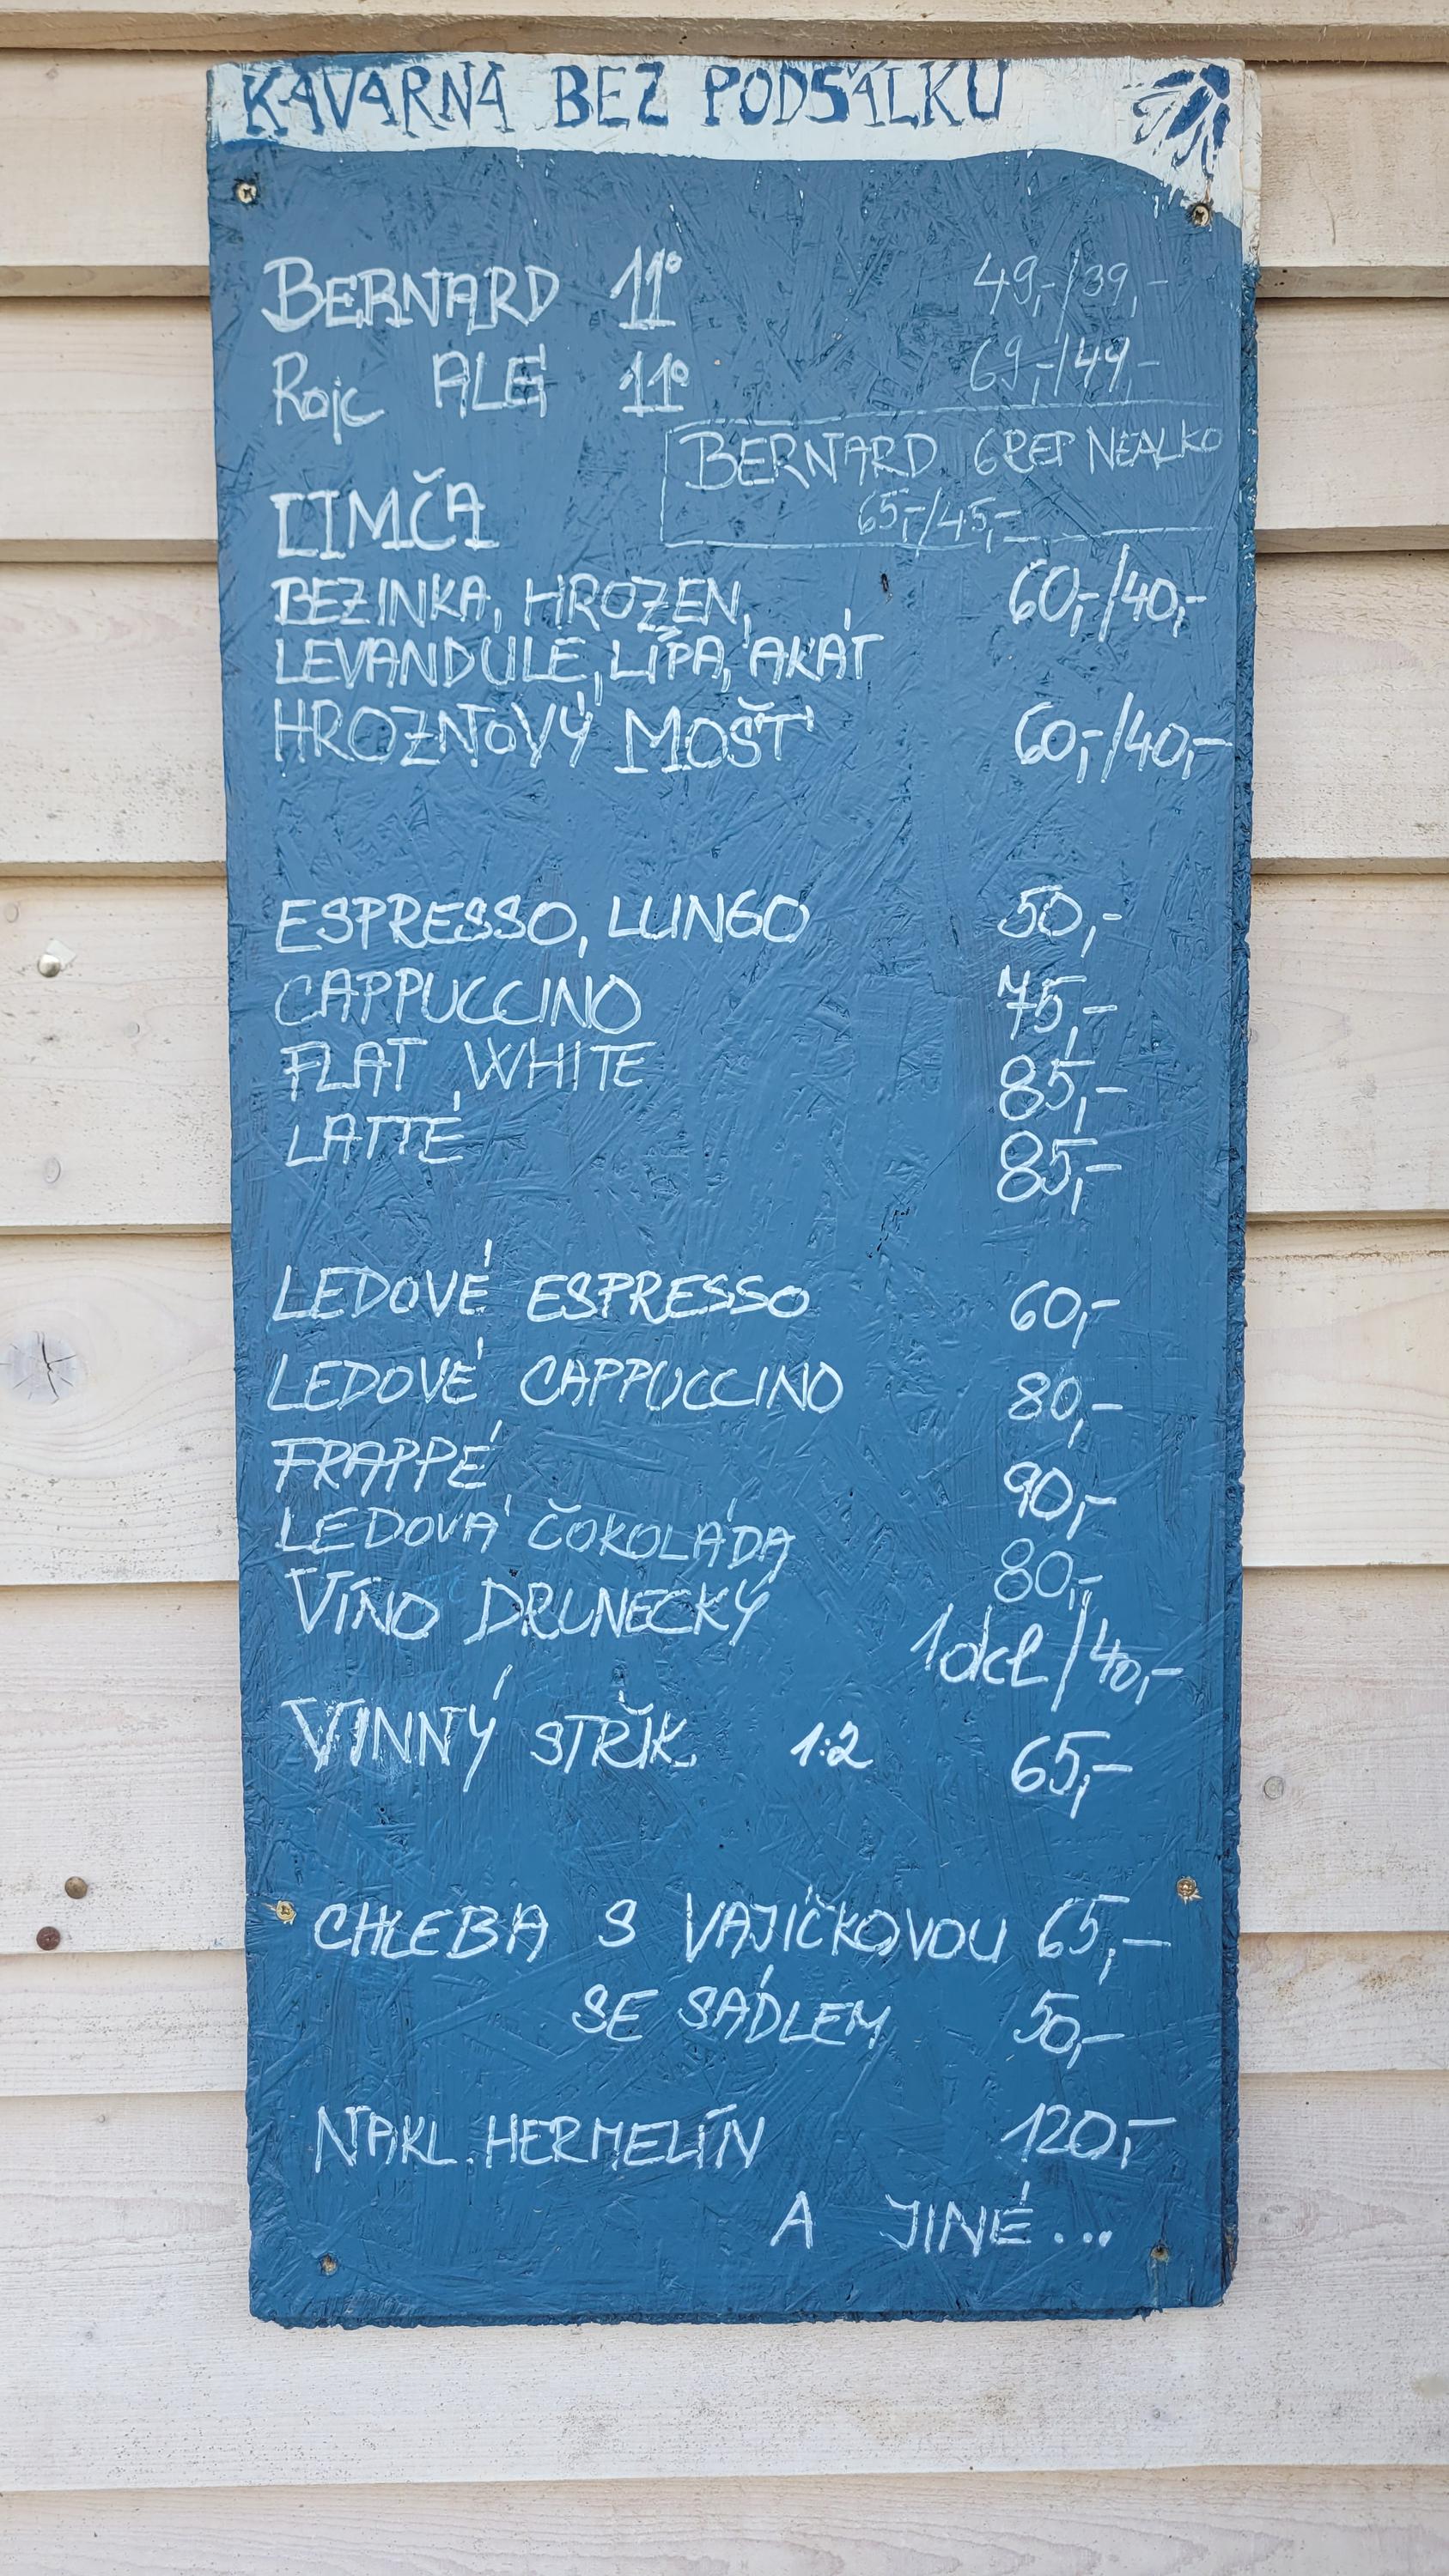 KAVÁRNA BEZ PODŠÁLKU
BERNARD 11° 49,-/39,-
Rojc ALE 11° 69,-/49,-
BERNARD GREP NEALKO
65,-/45,-
LIMČA
BEZINKA, HROZEN, 60,-/40,-
LEVANDULE, LÍPA, AKÁT
HROZNOVÝ MOŠT 60,-/40,-
ESPRESSO, LUNGO 50,-
CAPPUCCINO 75,-
FLAT WHITE 85,-
LATTÉ 85,-
LEDOVÉ ESPRESSO 60,-
LEDOVÉ CAPPUCCINO 80,-
FRAPPÉ 90,-
LEDOVÁ ČOKOLÁDA 80,-
VÍNO DRUNECKÝ 1dcl/40,-
VINNÝ STŘIK 1:2 65,-
CHLEBA S VAJÍČKOVOU 65,-
SE SÁDLEM 50,-
NAKL. HERMELÍN 120,-
A JINÉ...